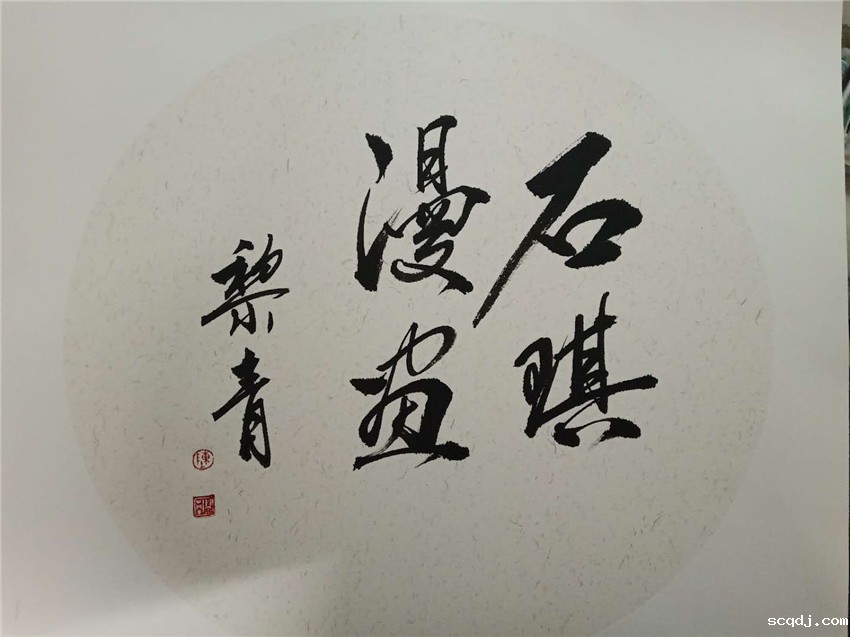 石琪
漫画
黎青
陳
scqdj.com